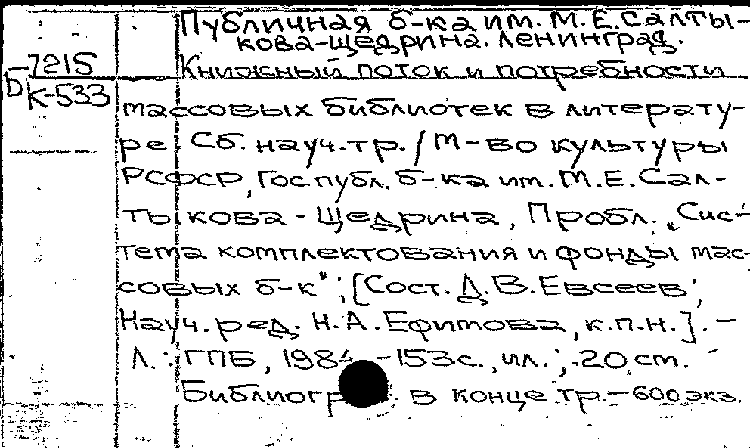 Публичная б-ка им. М.Е.Салты-
кова-Щедрина. Ленинград.
Б-7215
К-533
Книжный поток и потребности
массовых библиотек в литерату-
ре: Сб. науч.тр. / М-во культуры
РСФСР, Гос публ. б-ка им. М.Е.Сал-
тыкова-Щедрина, Пробл. „Сис-
тема комплектования и фонды мас-
совых б-к"; [Сост. Д.В.Евсеев;
Науч. ред. Н.А.Ефимова, к.п.н.]. -
Л.: ГПБ, 1984. -153с., ил.; 20 см. -
в конце тр.-600экз.